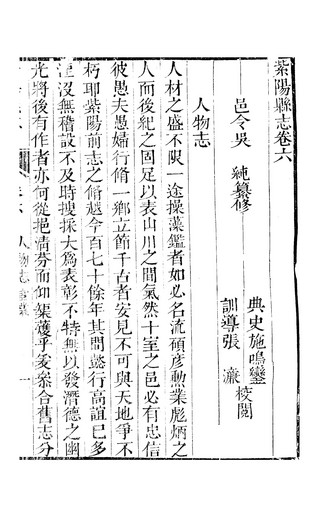 紫陽縣志卷六
邑令吳 純纂修
典史施鳴鑾
訓導張 瀛
校閱
人物志
人材之盛不限一途操藻鑑者如必名流碩彦勲業彪炳之
人而後紀之固足以表山川之間氣然十室之邑必有忠信
彼愚夫愚婦行脩一鄉立節千古者安見不可與天地爭不
朽耶紫陽前志之脩越今百七十餘年其間懿行高誼已多
湮沒無稽設不及時搜採大為表彰不特無以發濳德之幽
光將後有作者亦何從挹清芬而仰榘矱乎爰綜合舊志分
卷六
人物志
一